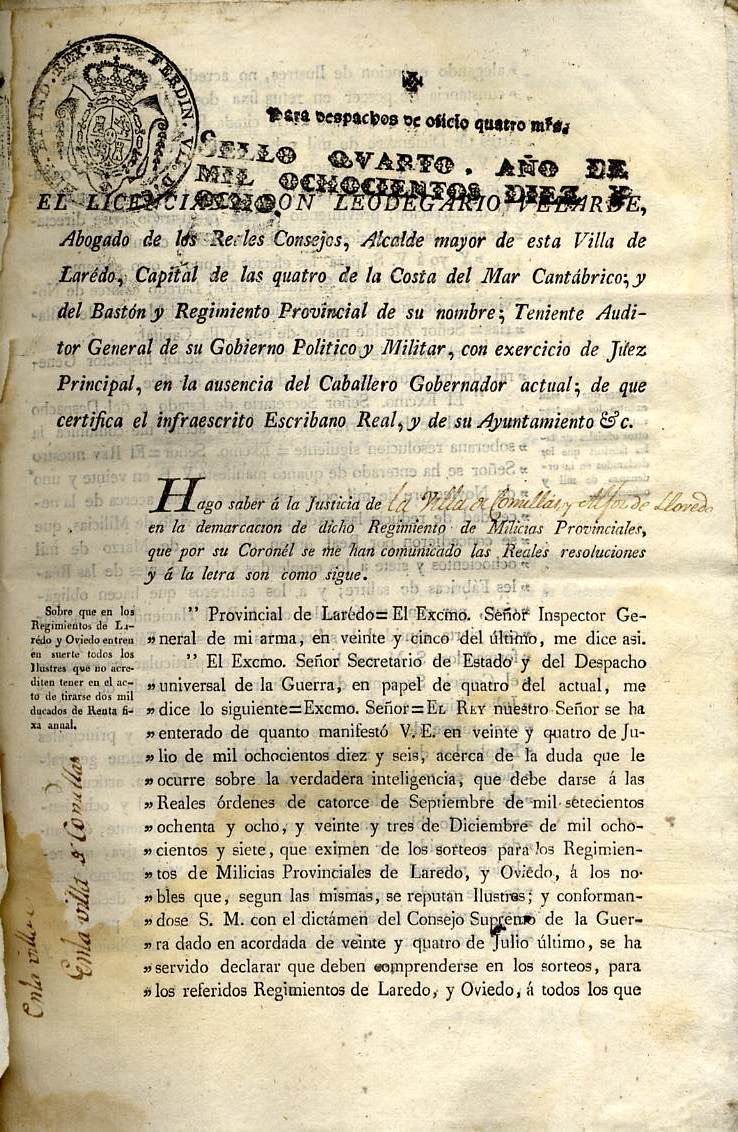 FERDIN. VII. D. ET IND. REX.
Para despachos de oficio quatro mrs.
SELLO QVARTO. AÑO DE
MIL OCHOCIENTOS DIEZ Y
OCHO.
EL LICENCIADO DON LEODEGARIO VELARDE,
Abogado de los Reales Consejos, Alcalde mayor de esta Villa de
Larédo, Capital de las quatro de la Costa del Mar Cantábrico; y
del Bastón y Regimiento Provincial de su nombre; Teniente Audi-
tor General de su Gobierno Politico y Militar, con exercicio de Júez
Principal, en la ausencia del Caballero Gobernador actual; de que
certifica el infraescrito Escribano Real, y de su Ayuntamiento &c.
Hago saber á la Justicia de la Villa de Comillas y Alfoz de Lloredo
en la demarcacion de dicho Regimiento de Milicias Provinciales,
que por su Coronél se me han comunicado las Reales resoluciones
y á la letra son como sigue.
Sobre que en los
Regimientos de La-
rédo y Oviedo entren
en suerte todos los
Ilustres que no acre-
diten tener en el ac-
to de tirarse dos mil
ducados de Renta fi-
xa anual.
" Provincial de Larédo=El Excmo. Señor Inspector Ge-
"neral de mi arma, en veinte y cinco del último, me dice asi.
" El Excmo. Señor Secretario de Estado y del Despacho
"universal de la Guerra, en papel de quatro del actual, me
"dice lo siguiente=Excmo. Señor=EL REY nuestro Señor se ha
"enterado de quanto manifestó V. E. en veinte y quatro de Ju-
"lio de mil ochocientos diez y seis, acerca de la duda que le
"ocurre sobre la verdadera inteligencia, que debe darse á las
"Reales órdenes de catorce de Septiembre de mil setecientos
"ochenta y ocho, y veinte y tres de Diciembre de mil ocho-
"cientos y siete, que eximen de los sorteos para los Regimien-
"tos de Milicias Provinciales de Laredo, y Oviedo, á los no-
"bles que, segun las mismas, se reputan Ilustres; y conforman-
"dose S. M. con el dictámen del Consejo Supremo de la Guer-
"ra dado en acordada de veinte y quatro de Julio último, se ha
"servido declarar que deben comprenderse en los sorteos, para
"los referidos Regimientos de Laredo, y Oviedo, á todos los que
En la villa de Comillas
En la villa